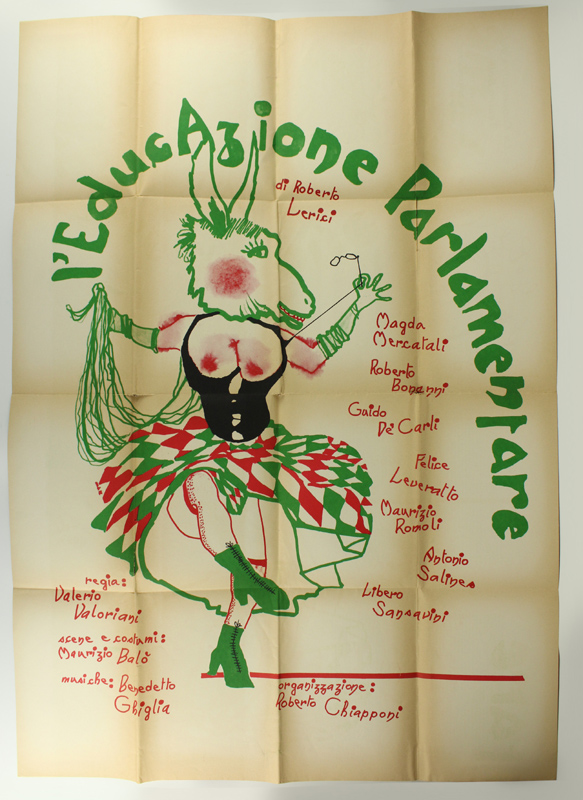 l'EducAzione Parlamentare
di Roberto
Lerici
Magda
Mercatali
Roberto
Bonanni
Guido
De Carli
Felice
Leveratto
Maurizio
Romoli
Antonio
Salines
Libero
Sansavini
regia:
Valerio
Valoriani
scene e costumi:
Maurizio Balò
musiche: Benedetto
Ghiglia
organizzazione:
Roberto Chiapponi